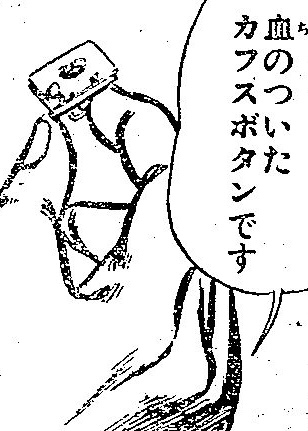 血のついた
カフスボタンです